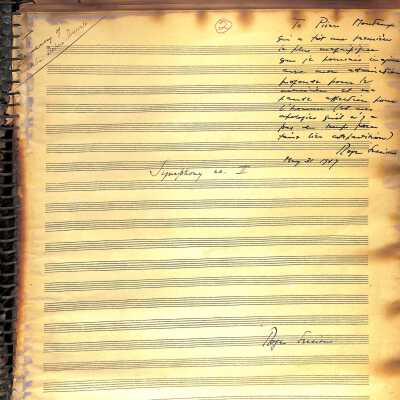 Memory of
To Pierre Monteux
qui a fait une première
la plus magnifique
que je pouvais
avec mon admiration
profonde pour le
musicien et ma
grande affection pour
l'homme (et mes
apologies qu'il n'y a
pas de temps pour
faire
Roger Sessions
May 31 1947
Symphony no. II
Roger Sessions